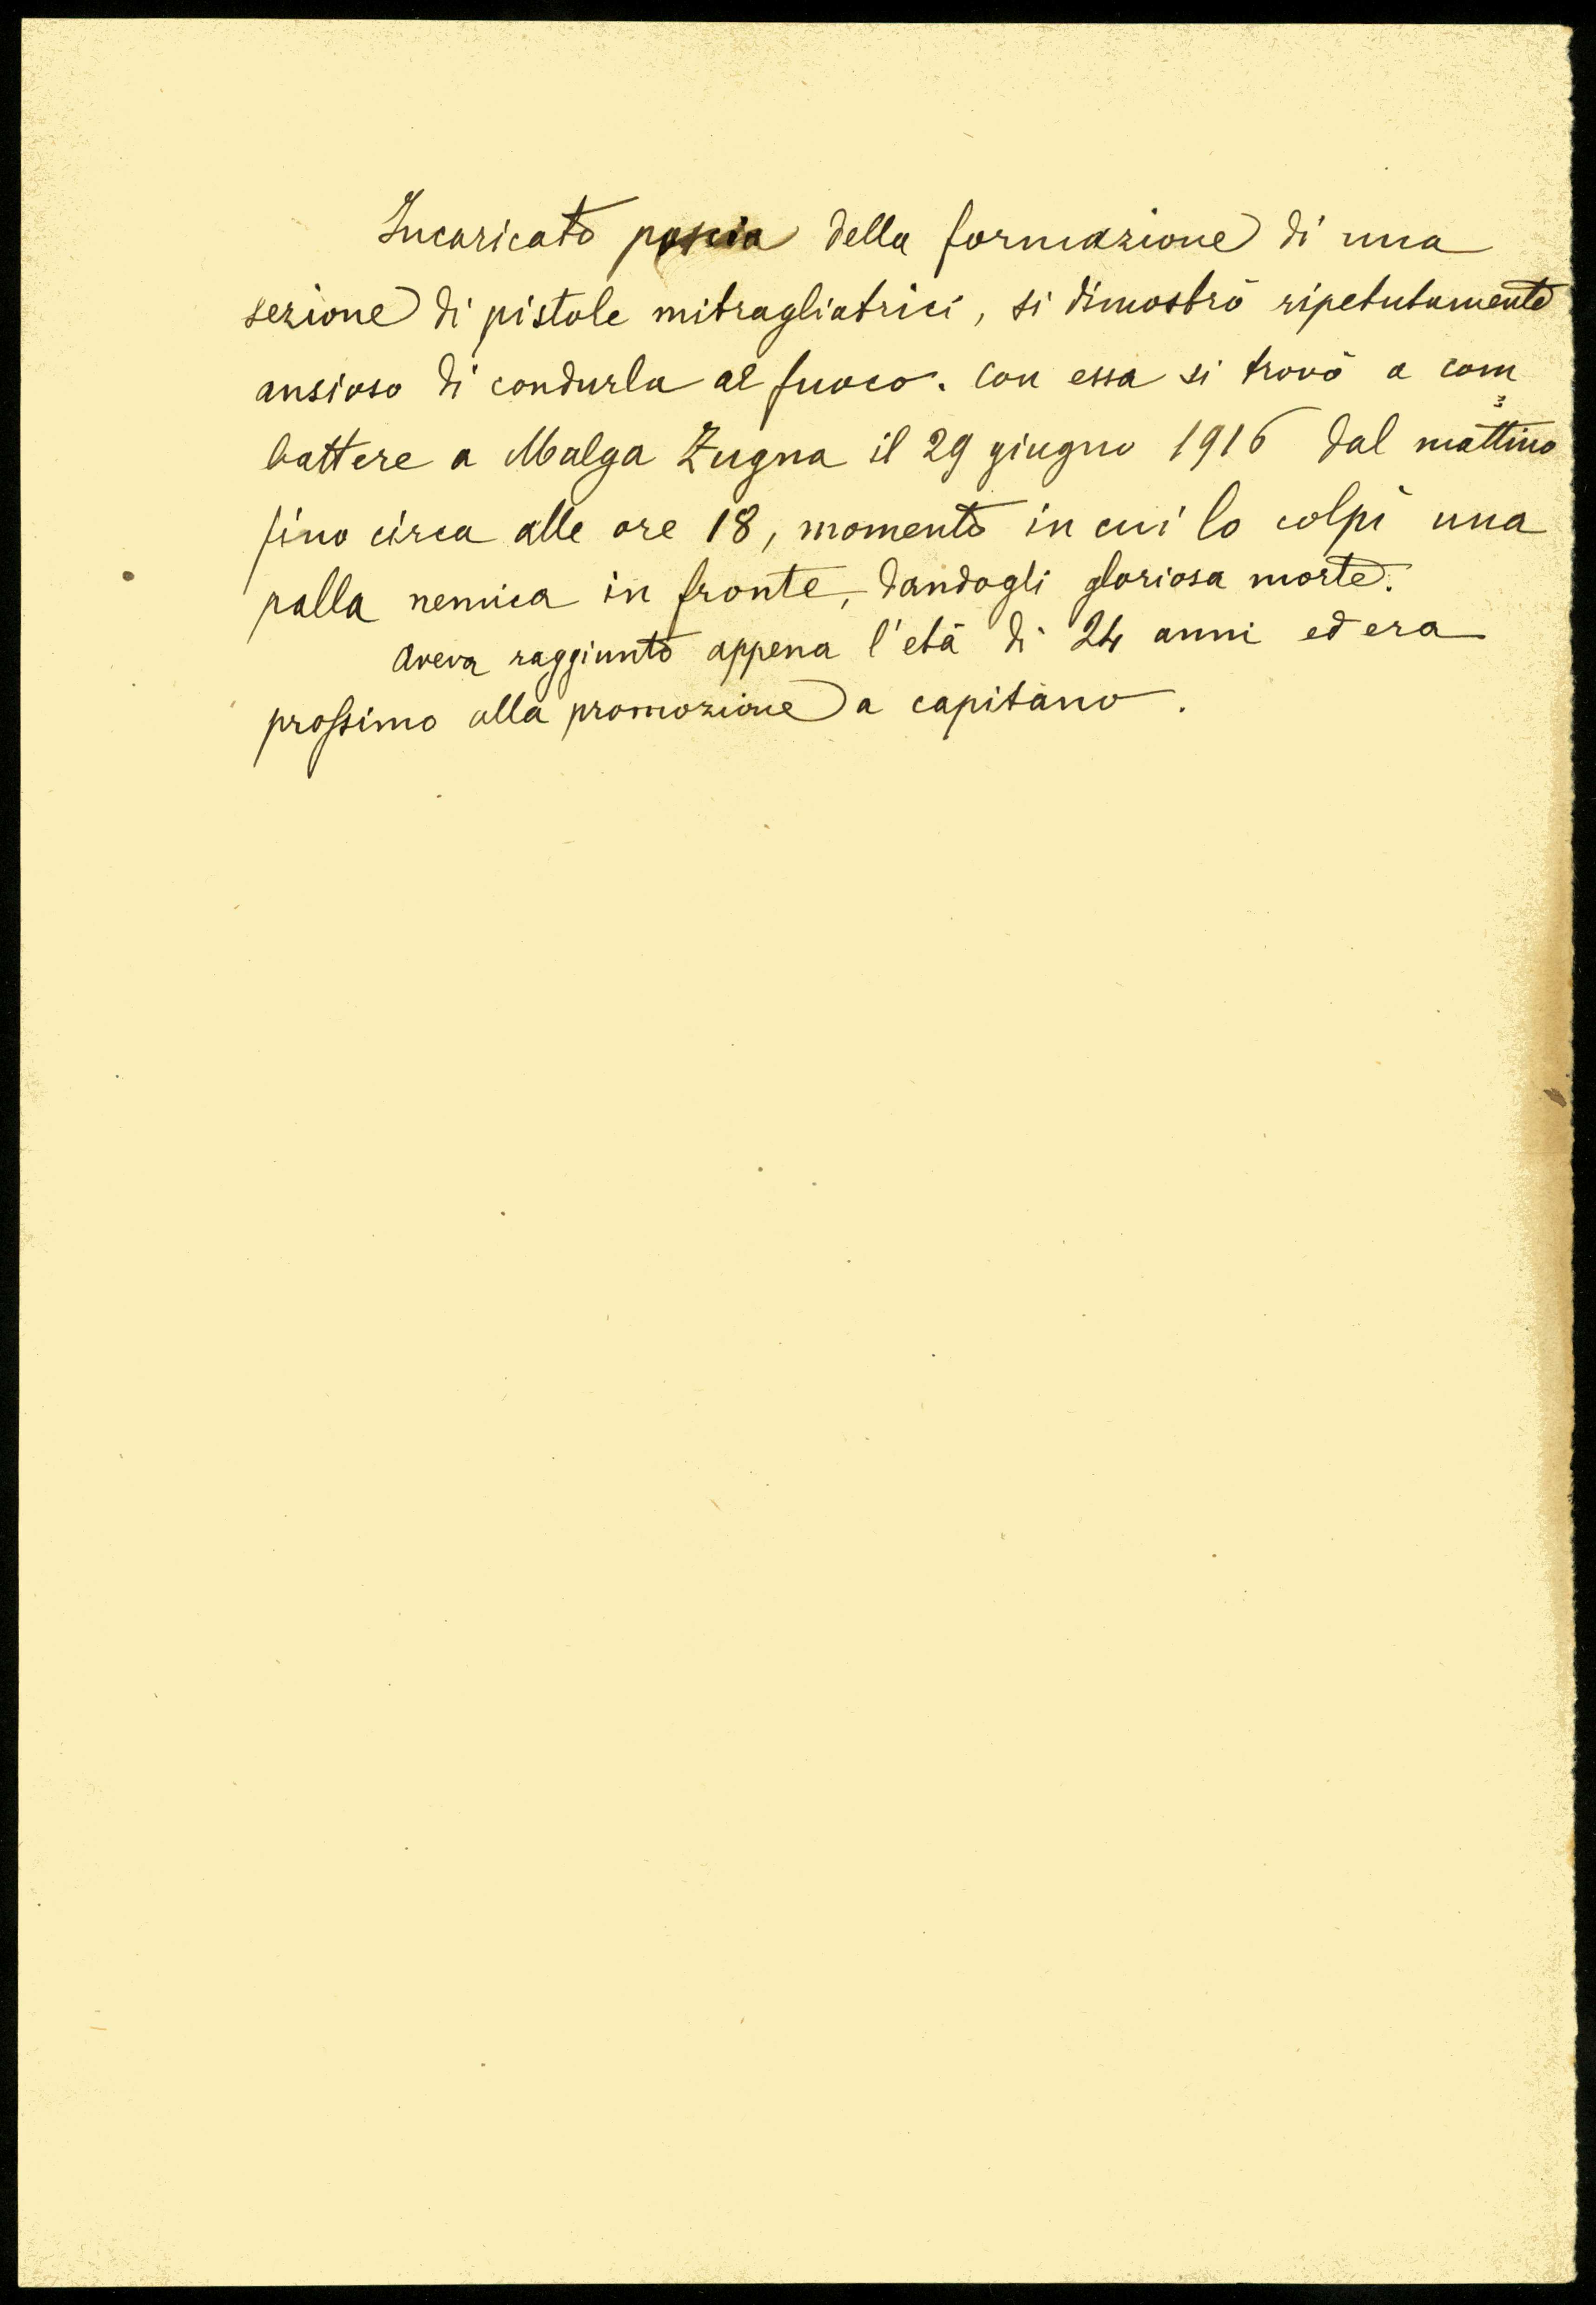 Incaricato poscia della formazione di una
sezione di pistole mitragliatrici, si dimostrò ripetutamente
ansioso di condurla al fuoco. Con essa si trovò a com
battere a Malga Zugna il 29 giugno 1916 dal mattino
fino circa alle ore 18, momento in cui lo colpì una
palla nemica in fronte, dandogli gloriosa morte.
Aveva raggiunto appena l'età di 24 anni ed era
prossimo alla promozione a capitano.